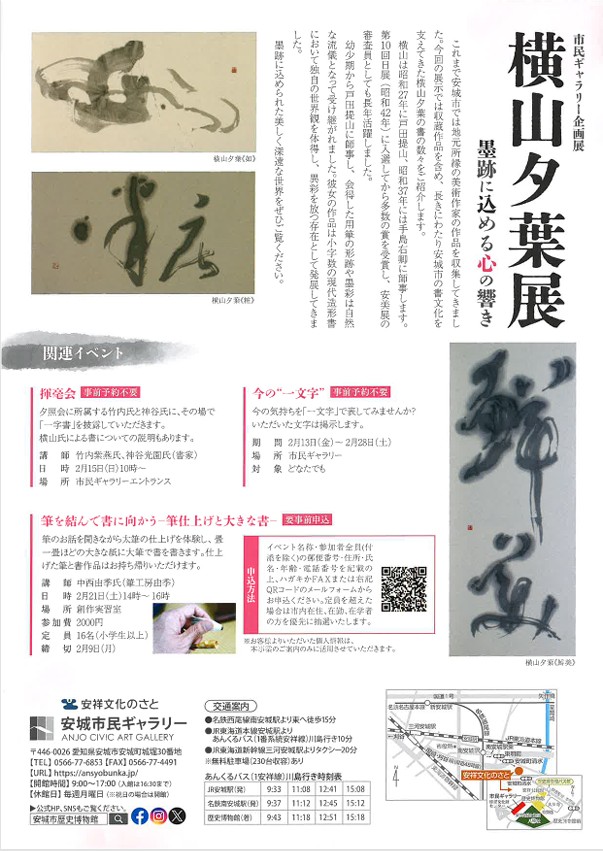 市民ギャラリー企画展
横山夕葉展
墨跡に込める心の響き
これまで安城市では地元所縁の美術作家の作品を収集してきまし
た。今回の展示では収蔵作品を含め、長きにわたり安城市の書文化を
支えてきた横山夕葉の書の数々をご紹介します。
横山は昭和27年に戸田提山、昭和37年には手島右卿に師事します。
第10回日展(昭和42年)に入選してから多数の賞を受賞し、安美展の
審査員としても長年活躍しました。
幼少期から戸田提山に師事し、会得した用筆の形跡や墨彩は自然
な流儀となって受け継がれました。彼女の作品は小字数の現代造形書
において独自の世界観を体得し、異彩を放つ存在として発展してきま
した。
墨跡に込められた美しく深遠な世界をぜひご覧ください。
横山夕葉《如》
横山夕葉《粧》
横山夕葉《鮮美》
関連イベント
揮毫会 事前予約不要
夕照会に所属する竹内氏と神谷氏に、その場で
「一字書」を披露していただきます。
横山氏による書についての説明もあります。
講師 竹内紫燕氏、神谷光園氏(書家)
日時 2月15日(日)10時～
場所 市民ギャラリーエントランス
今の“一文字” 事前予約不要
今の気持ちを「一文字」で表してみませんか?
いただいた文字は掲示します。
期間 2月13日(金)～2月28日(土)
場所 市民ギャラリー
対象 どなたでも
筆を結んで書に向かう―筆仕上げと大きな書― 要事前申込
筆のお話を聞きながら太筆の仕上げを体験し、畳
一畳ほどの大きな紙に大筆で書を書きます。仕上
げた筆と書作品はお持ち帰りいただけます。
講師 中西由季氏(筆工房由季)
日時 2月21日(土)14時～16時
場所 創作実習室
参加費 2000円
定員 16名(小学生以上)
締切 2月9日(月)
申込方法
イベント名称・参加者全員(付
添を除く)の郵便番号・住所・氏
名・年齢・電話番号を記載の
上、ハガキかFAXまたは右記
QRコードのメールフォームから
お申込ください。定員を超えた
場合は市内在住、在勤、在学者
の方を優先に抽選いたします。
※お客様よりいただいた個人情報は、
本事業のご案内のみに活用させていただきます。
安祥文化のさと
安城市民ギャラリー
ANJO CIVIC ART GALLERY
〒446-0026 愛知県安城市安城町城堀30番地
【TEL】0566-77-6853【FAX】0566-77-4491
【URL】https://ansyobunka.jp/
【開館時間】9:00～17:00(入館は16:30まで)
【休館日】毎週月曜日(※祝日の場合は開館)
▶公式HP、SNSもご覧ください。
安城市歴史博物館
交通案内
●名鉄西尾線南安城駅より東へ徒歩15分
●JR東海道本線安城駅より
あんくるバス(1番系統安祥線)川島行き10分
●JR東海道新幹線三河安城駅よりタクシー20分
※無料駐車場(230台収容)あり
あんくるバス(1安祥線)川島行き時刻表
JR安城駅(発) 9:33 11:08 12:41 15:08
名鉄南安城駅(発) 9:37 11:12 12:45 15:12
歴史博物館(着) 9:43 11:18 12:51 15:18
安祥文化のさと